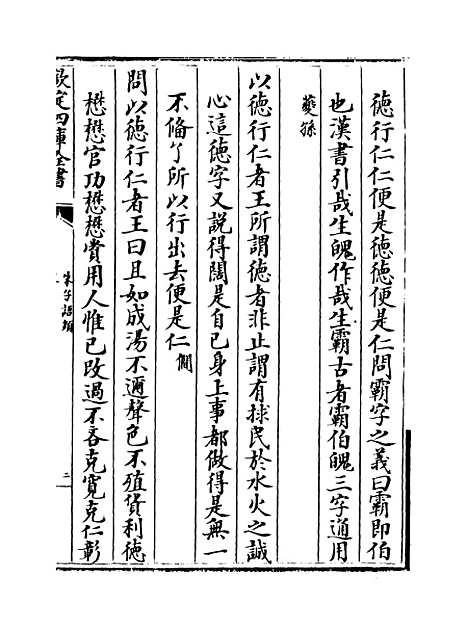 德行仁仁便是德德便是仁問霸字之義曰霸即伯
也漢書引哉生魄作哉生霸古者霸伯魄三字通用
夔孫
以德行仁者王所謂德者非止謂有捄民於水火之誠
心這德字又說得闊是自己身上事都做得是無一
不備了所以行出去便是仁 僩
問以德行仁者王曰且如成湯不邇聲色不殖貨利德
懋懋官功懋懋賞用人惟已改過不吝克寛克仁彰
欽定四庫全書
朱子語類